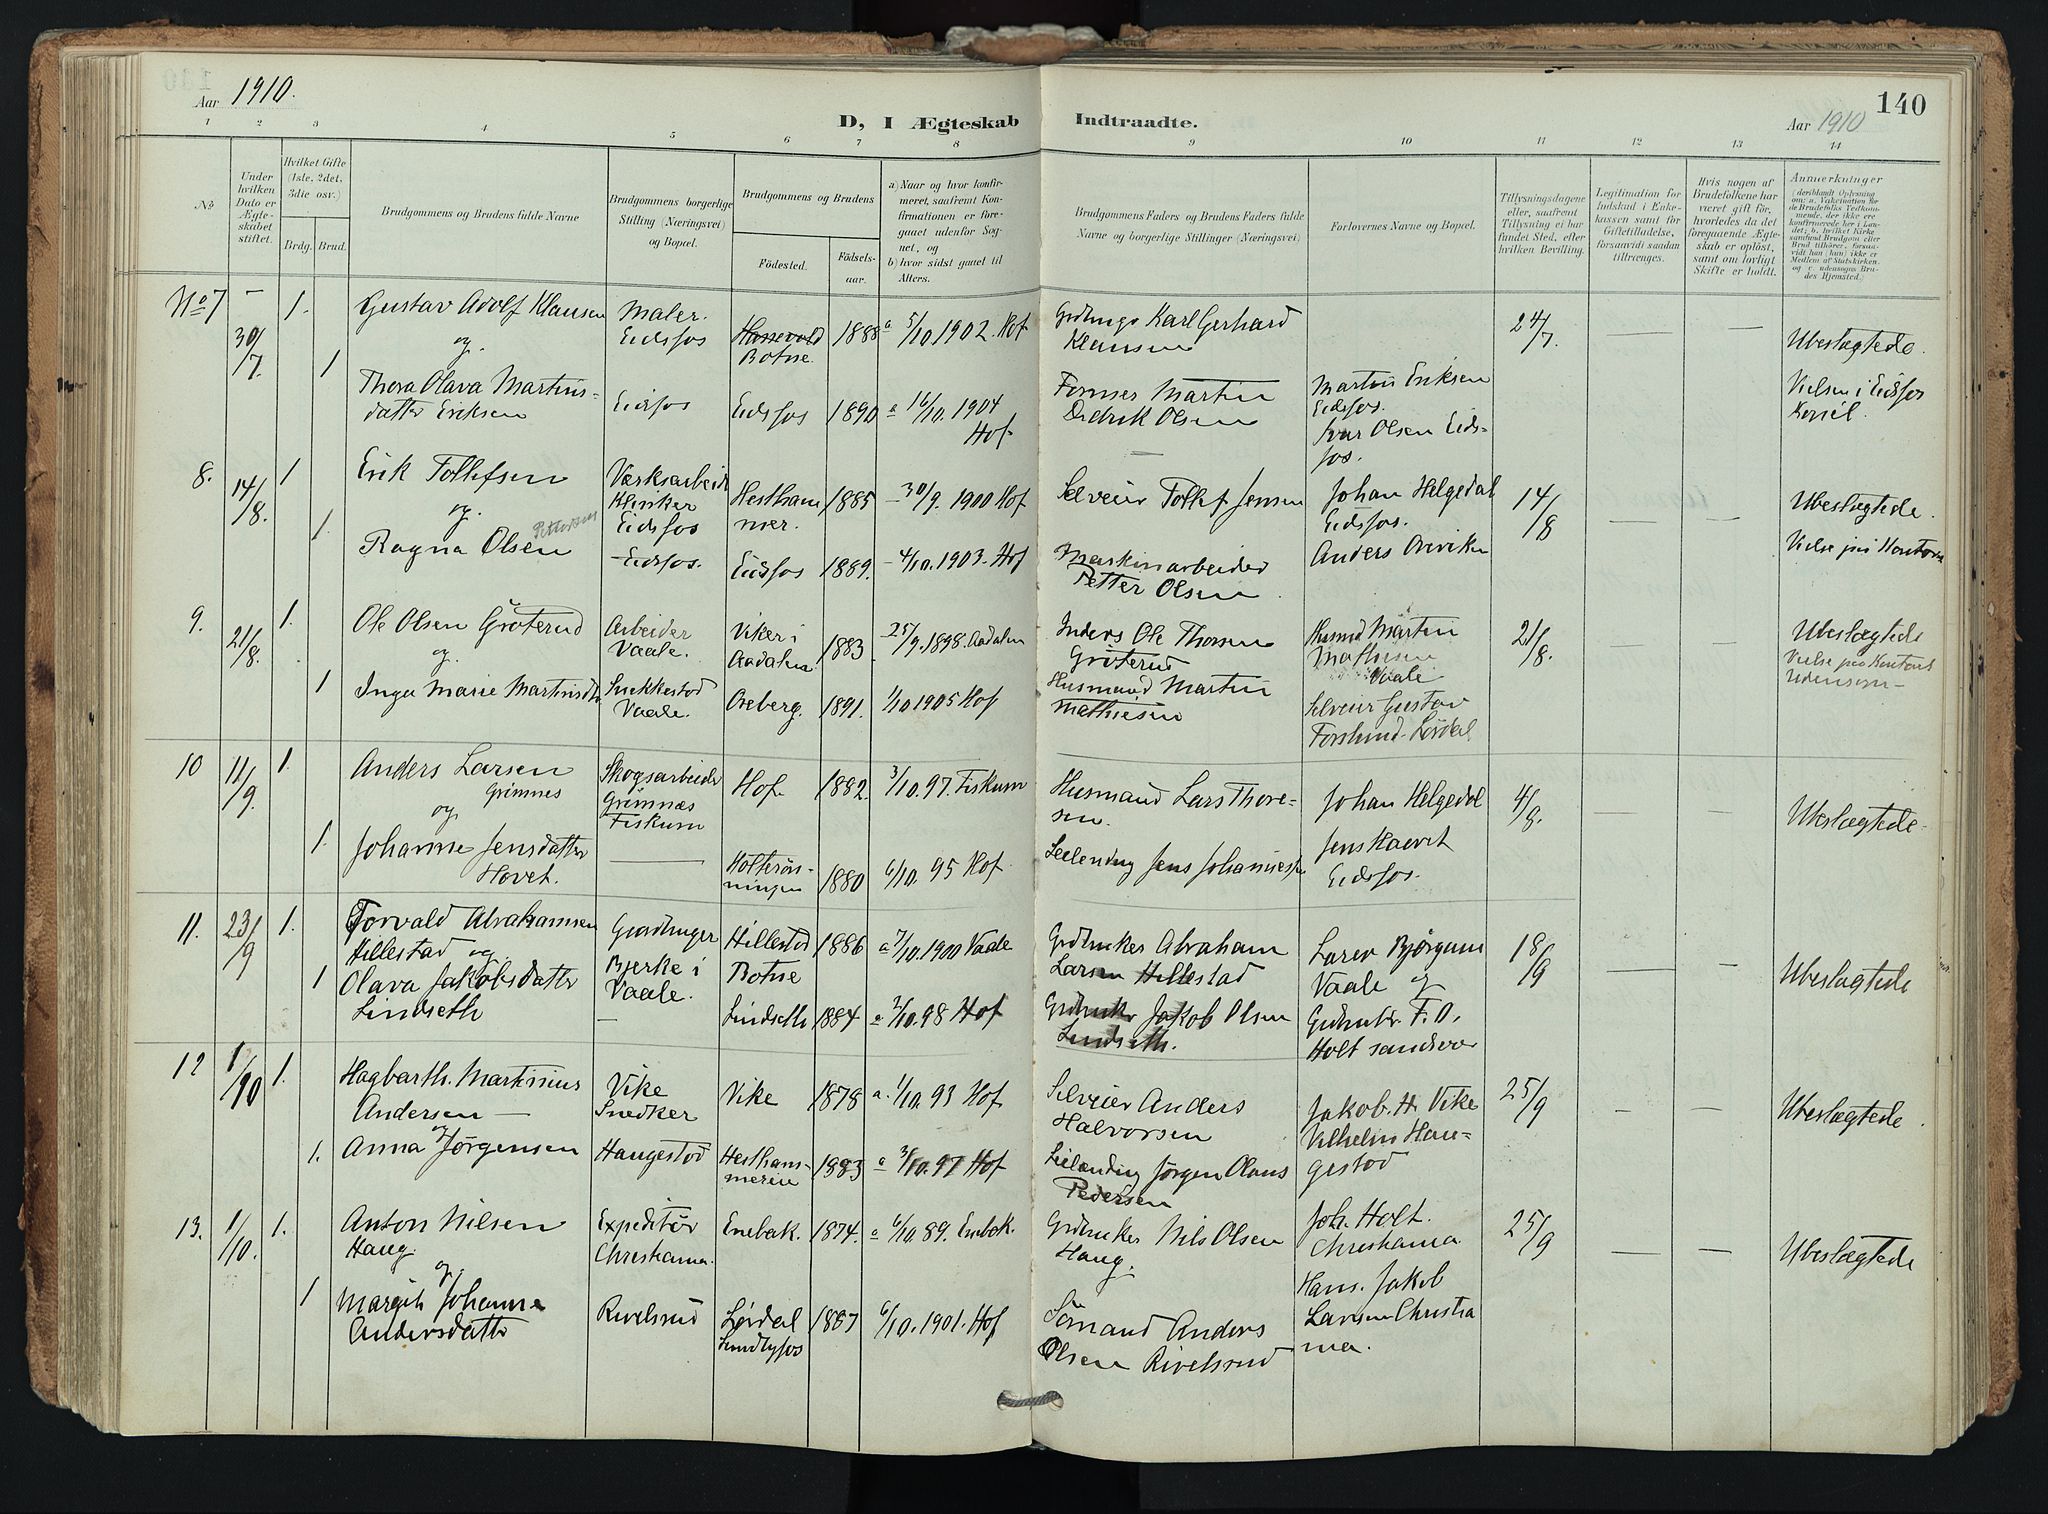 Aar 1910.
D, I Ægteskab Indtraadte.
140
Aar 1910
1 2 3 4 5 6 7 8 9 10 11 12 13 14
No.
Under hvilken Dato er Ægteskabet stiftet.
Hvilket Gifte (1ste, 2det, 3die osv.)
Brdg. Brud.
Brudgommens og Brudens fulde Navne
Brudgommens borgerlige Stilling (Næringsvei) og Bopæl.
Brudgommens og Brudens
Födested.
Födselsaar.
a) Naar og hvor konfirmeret, saafremt Konfirmationen er foregaaet udenfor Sognet, og
b) hvor sidst gaaet til Alters.
Brudgommens Faders og Brudens Faders fulde Navne og borgerlige Stillinger (Næringsvei)
Forlovernes Navne og Bopæl.
Tillysningsdagene eller, saafremt Tillysning ei har fundet Sted, efter hvilken Bevilling.
Legitimation for Indskud i Enkekassen samt for Giftetilladelse, forsaavidt saadan tiltrænges.
Hvis nogen af Brudefolkene har været gift för, hvorledes da det foregaaende Ægteskab er oplöst, samt om lovligt Skifte er holdt.
Anmerkninger
(deriblandt Oplysning om: a. Vakcination for de Brudefolks Vedkommende, der ikke ere konfirmerede her i Landet; b. hvilket Kirkesamfund Brudgom eller Brud tilhører, forsaavidt han (hun) ikke er Medlem af Statskirken, og c. udensogns Brudes Hjemsted.)
No 7 30/7. 1. Gustav Adolf Klausen Maler. Eidsfos Hassevold Botne. 1888 a 5/10 1902. Hof Karl Gerhard Klausen 24/7. — — Ubeslægtede.
og
1 Thora Olava Martinsdatter Eriksen Eidsfos Eidsfos 1890 a 16/10. 1904 Hof Former Martin Didrik Olsen Martin Eriksen Eidsfos. Ivar Olsen Eidsfos. Vielsen i Eidsfos
8. 14/8. 1 Erik Tollefsen Værksarbeid Klinker Eidsfos Hesthammer. 1885 — 30/9. 1900 Hof Selveier Tollef Jensen Johan Helgedal Eidsfos. 14/8 — — Ubeslægtede.
og
1. Ragna Olsen Pettersen Eidsfos. Eidsfos 1889. — 4/10. 1903. Hof Maskinarbeider Petter Olsen Anders Vielse paa Kontoret
9. 21/8. 1. Ole Olsen Gröterud Arbeider Vaale. Viker i Aadalen 1883 25/9. 1898. Aadalen Inders Ole Thorsen Gröterud Husmd Martin Mathisen Vaale 21/8. — — Ubeslægtede
og
1 Inga Marie Martinsdtr Snekkestad Vaale. Oreberg. 1891. 1/10 1905 Hof Husmand Martin Mathiesen Selveier Gustav Forslund Lördal Vielse paa Kontoret Udensogn—
10 11/9. 1. Anders Larsen Grimnes Skogsarbeider Grimnæs Fiskum Hof 1882. 3/10. 97. Fiskum Husmand Lars Thoresen. Johan Helgedal 4/9. — — Ubeslægtede
og
1. Johanne Jensdatter Hovet. — Holterönningen 1880 6/10. 95 Hof Leilending Jens Johannesen Jens Eidsfos.
11. 23/9 1. Torvald Abrahamsen Hillestad og Gaardbruger Bjerke i Vaale. Hillestad Botne 1886 a 7/10. 1900 Vaale Grdbruker Abraham Larsen Hillestad Bjørgum Vaale og 18/9 — — Ubeslægtede
1 Olava Jakobsdatter Lindseth — Lindseth 1884 a 2/10. 98 Hof Grdbruker Jakob Olsen Lindseth. Grdbrukr. F. O. Holt
12 1/10 1. Hagbarth. Martinius Andersen — Vike Snedker Vike 1878 a. 1/10. 93 Hof Selveier Anders Halvorsen Jakob. H. Vike 25/9 — — Ubeslægtede
og
1. Anna Jørgensen Haugestad Hesthammeren 1883 a 3/10. 97 Hof Leilending Jørgen Olaus Pedersen Vilhelm Haugestad
13. 1/10. 1. Anton Nilsen Haug. Expeditör Christiania. Enebak. 1874. a 6/10. 89. Enebak. Grdbruker Nils Olsen Haug. Joh. Holt. Christiania. 25/9 — — Ubeslægtede
og
1 Margit Johanne Andersdatter Rivelsrud Lördal Sundbyfos 1887 6/10. 1901. Hof Sömand Anders Olsen Rivelsrud Hans. Jakob Larsen Christiania.